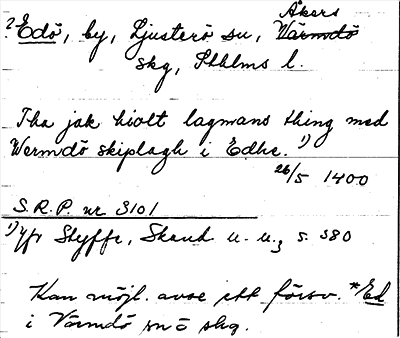 Åkers
? Edö, by, Ljusterö sn, Värmdö
skg, Sthlms l.
Tha jak hiolt lagmans thing med
Wermdö skiplagh i Edhe. 1)
26/5 1400
S.R.P. nr 3101
1) Jfr Styffe, Skand u. u., s. 380
Kan möjl. avse ett försv. *Ed
i Värmdö sn o skg.